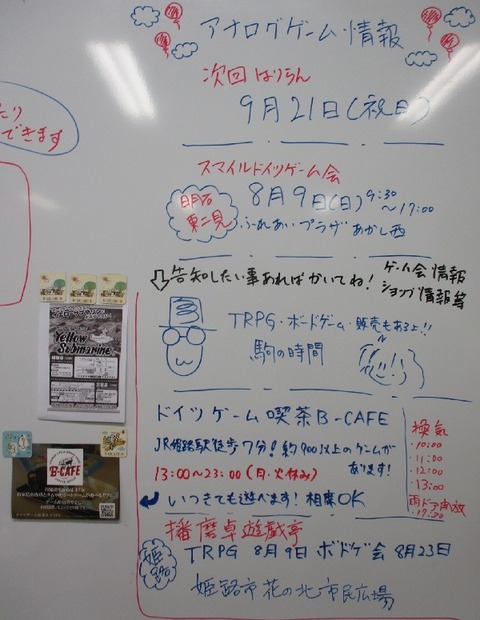 アナログゲーム情報
次回はりらん
9月21日(祝日)
たり
できます
スマイルドイツゲーム会
明石
東二見
8月9日(日) 9:30
～17:00
ふれあいプラザあかし西
告知したい事あればかいてね!
ゲーム会情報
ショップ情報等
TRPG・ボードゲーム・販売もあるよ!!
駒の時間
ドイツゲーム喫茶B-CAFE
JR姫路駅徒歩7分! 約900以上のゲームが
あります!
13:00～23:00(月・火休み)
いつきても遊べます! 相席OK
換気
・10:00
・11:00
・12:00
・13:00
両ドア開放
・17:30
播磨卓遊戯亭
姫路
TRPG 8月9日 ボドゲ会 8月23日
姫路市花の北市民広場
Yellow
Submarine
B-CAFE